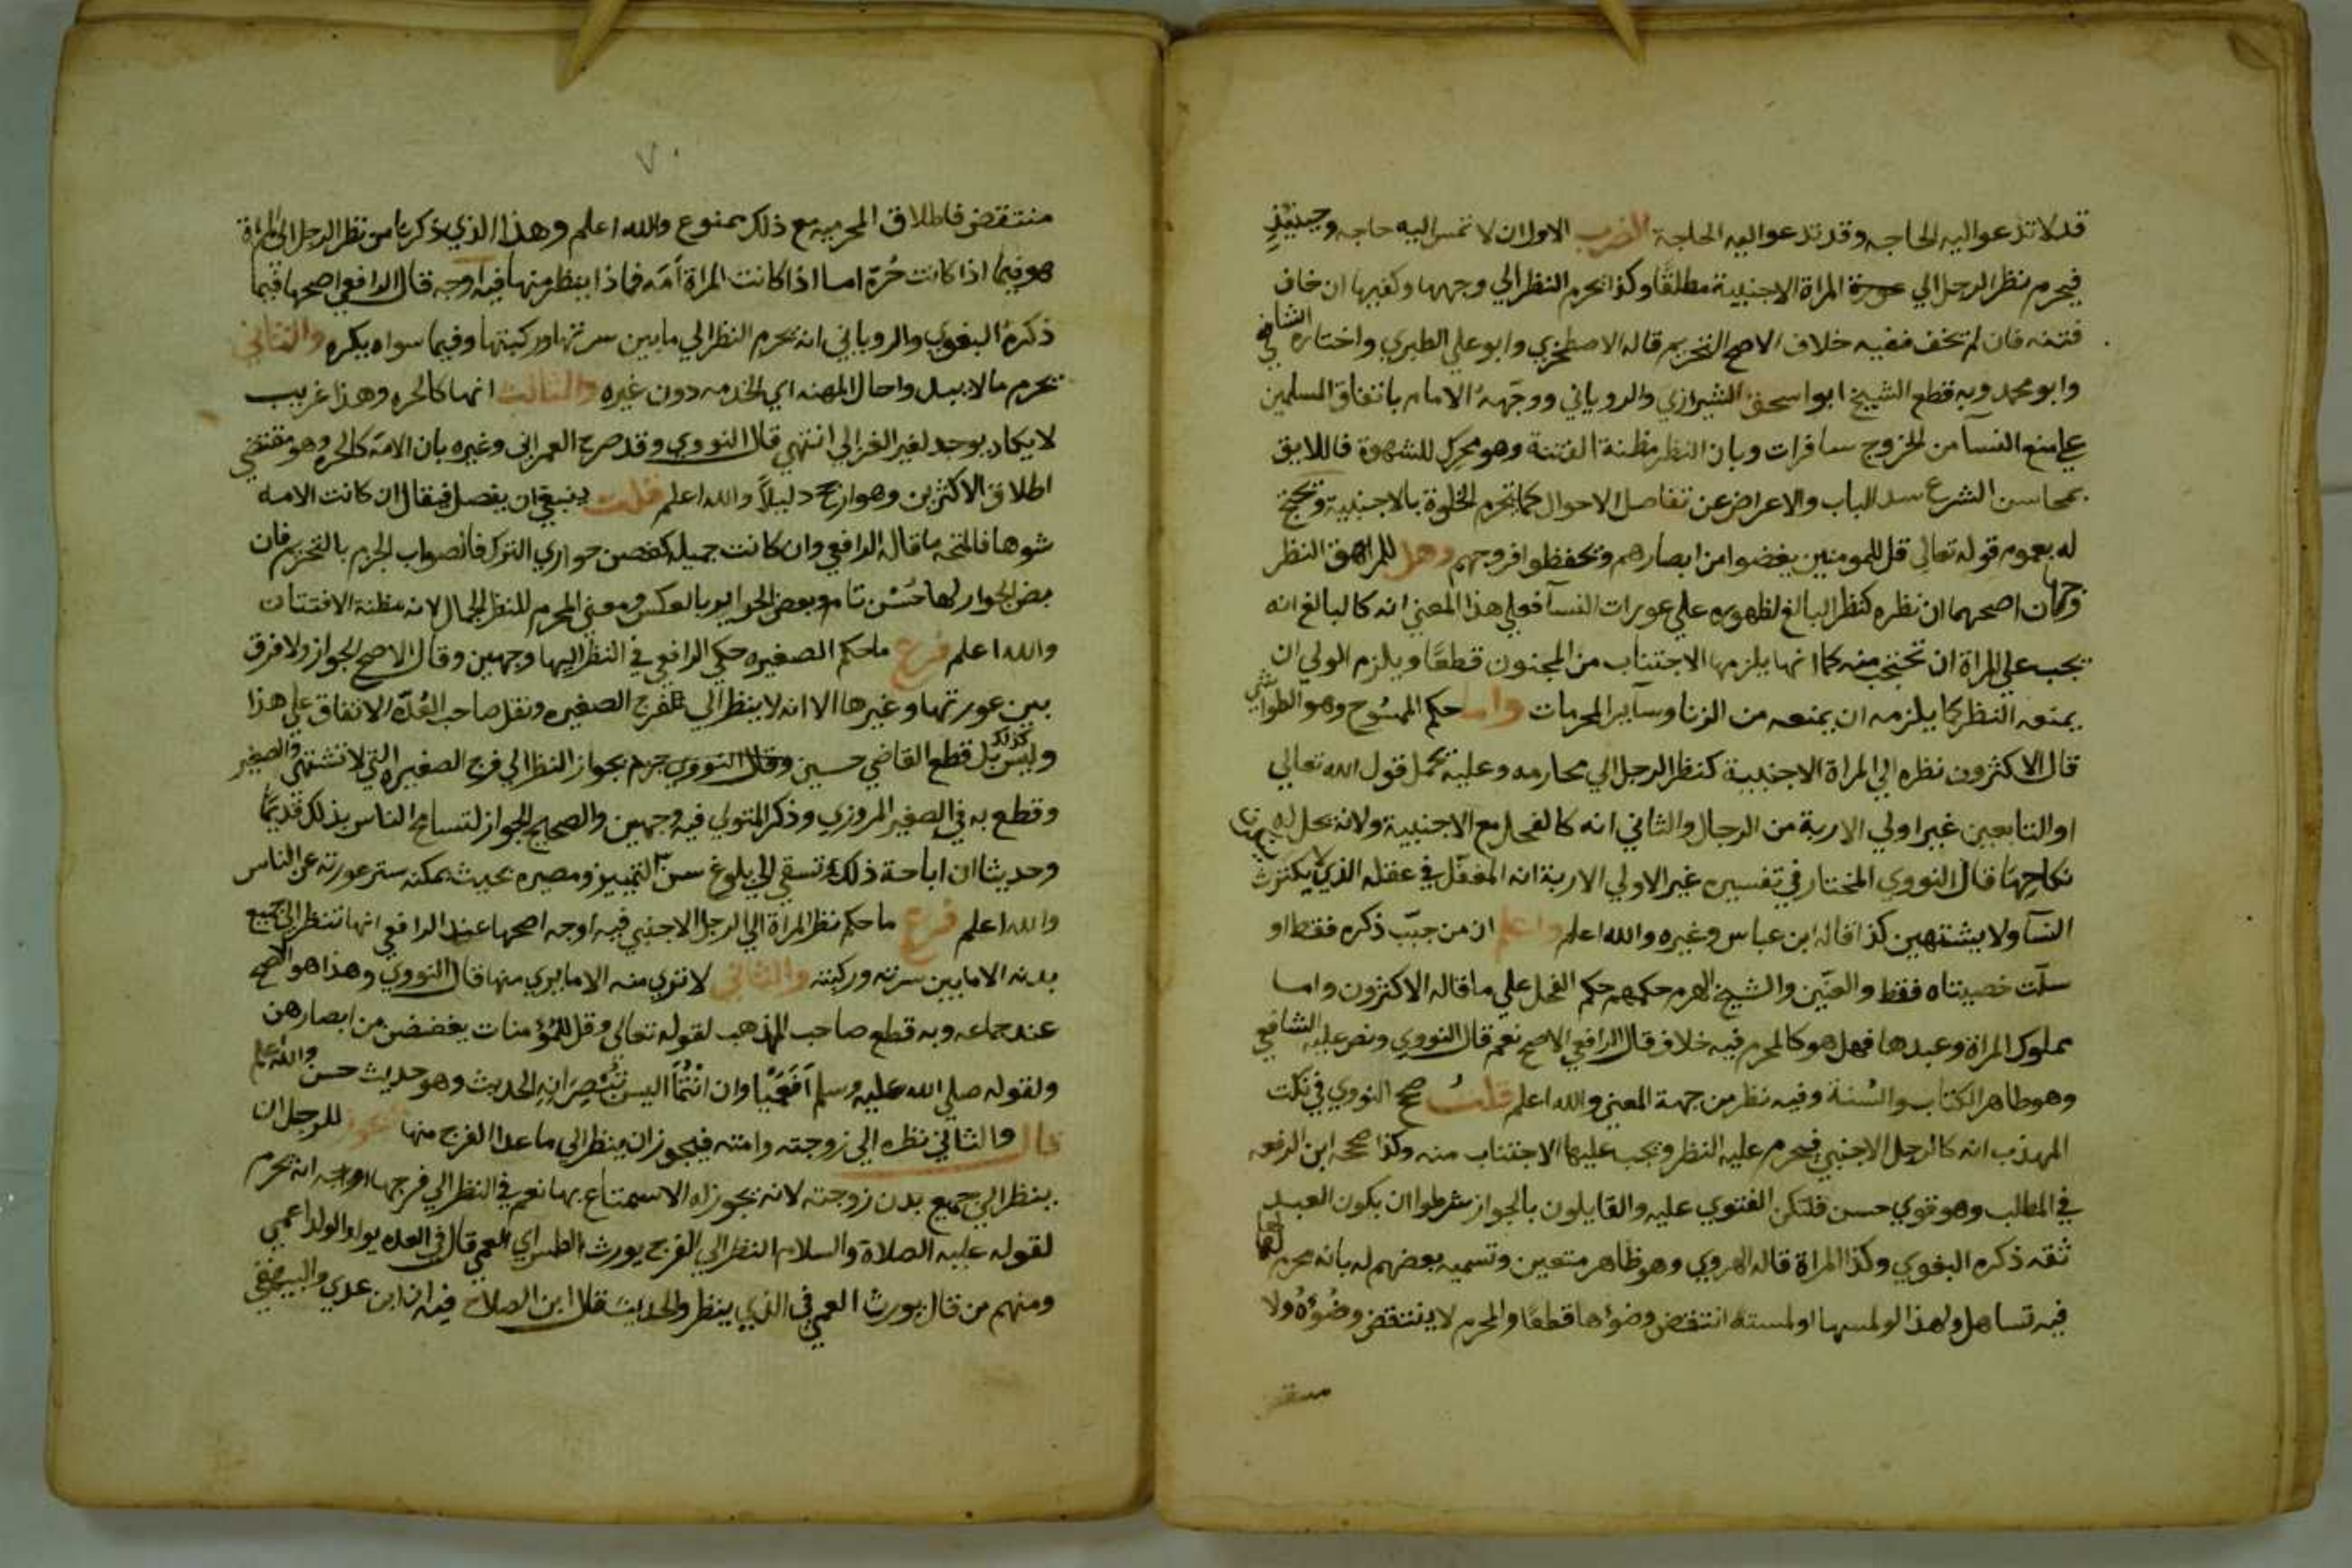 قد لا تدعو اليه الحاجه وقد تدعو اليه الحاجة الضرب الاول ان لا تمس اليه حاجه وحينيذٍ
فيحرم نظر الرجل الي عورة المراة الاجنبية مطلقًا وكذا يحرم النظر الي وجهها وكفيها ان خاف
فتنه فان لم يخف ففيه خلاف الاصح التحريم قاله الاصطخري وابو علي الطبري واختاره الشافي
وابو محمد وبه قطع الشيخ ابو اسحق الشيرازي والروياني ووجّههُ الامام باتفاق المسلمين
علي منع النسآ من الخروج سافرات وبان النظر مظنة الفتنة وهو محرك للشهوة فاللايق
بمحاسن الشرع سد الباب والاعراض عن تفاصل الاحوال كما تحرم الخلوة بالاجنبية ويحتج
له بعموم قوله تعالي قل للمومنين يغضوا من ابصارهم ويحفظوا فروجهم وهل للمراهق النظر
وجهان اصحهما ان نظره كنظر البالغ لظهوره علي عورات النسآ فعلي هذا المعني انه كالبالغ انه
يجب علي المراة ان تحتجب منه كما انها يلزمها الاجتناب من المجنون قطعًا ويلزم الولي ان
يمنعه النظر كما يلزمه ان يمنعه من الزنا وساير المحرمات واما حكم الممسُوح وهو الطواشي
قال الاكثرون نظره الي المراة الاجنبية كنظر الرجل الي محارمه وعليه يحمل قول الله تعالي
او التابعين غير اولي الاربة من الرجال والثاني انه كالفحل مع الاجنبية ولانه يحل له
نكاحها قال النووي المختار في تفسير غير الاولي الاربة انه المغفّل في عقله الذي لا يكترث
النسآ ولا يشتهين كذا قاله ابن عباس وغيره والله اعلم واعلم ان من جبّ ذكره فقط او
سلّت خصيتاه فقط والعنّين والشيخ الهرم حكمهم حكم الفحل علي ما قاله الاكثرون واما
مملوك المراة وعبدها فهل هو كالمحرم فيه خلاف قال الرافعي الاصح نعم قال النووي ونص عليه الشافعي
وهو ظاهر الكتاب والسُنة وفيه نظر من جهة المعني والله اعلم قلتُ صحح النووي في نكت
المهذب انه كالرجل الاجنبي فيحرم عليه النظر ويجب عليها الاجتناب منه وكذا صححه ابن الرفعه
في المطلب وهو قوي حسن فلتكن الفتوي عليه والقايلون بالجواز شرطوا ان يكون العبد
ثقه ذكره البغوي وكذا المراة قاله الهروي وهو ظاهر متعين وتسميه بعضهم له بانه محرم لها
فيه تساهل ولهذا لو لمسها او لمسته انتقض وضوُها قطعًا والمحرم لا ينتقض وضُوُهُ ولا
منتقض فاطلاق المحرميه مع ذلك ممنوع والله اعلم وهذا الذي ذكرناه من نظر الرجل الي المراة
هو فيما اذا كانت حُرّة اما اذا كانت المراة أمَه فماذا ينظر منها فيه اوجه قال الرافعي اصحها فيما
ذكرهُ البغوي والروياني انه يحرم النظر الي مابين سرتها وركبتها وفيما سواه يكره والثاني
يحرم مالا يبدوا حال المهنه اي الخدمه دون غيره والثالث انها كالحره وهذا غريب
لا يكاد يوجد لغير الغزالي انتهي قال النووي وقد صرح العمراني وغيره بان الامة كالحره وهو مقتضي
اطلاق الاكثرين وهو ارجح دليلاً والله اعلم قلت ينبغي ان يفصل فيقال ان كانت الامه
شوها فالمتجه ما قاله الرافعي وان كانت جميله كغصن جواري الترك فالصواب الجزم بالتحريم فان
بعض الجوار لها حُسْن تام وبعض الحراير بالعكس ومعني المحرم للنظر الجمال لانه مظنة الافتتان
والله اعلم فرع ماحكم الصغيره حكي الرافعي في النظر اليها وجهين وقال الاصح الجواز ولا فرق
بين عورتها وغيرها الا انه لا ينظر الي الفرج الصغيره ونقل صاحب العُدّه الاتفاق علي هذا
وليس كذلك بل قطع القاضي حسين وقال النووي جزم بجواز النظر الي فرج الصغيره التي لا تشتهي والصغير
وقطع به في الصغير المروزي وذكر المتولي فيه وجهين والصحيح الجواز لتسامح الناس بذلك قديمًا
وحديثا ان اباحة ذلك تبقي الي بلوغ سن التمييز ومصيره بحيث يمكنه ستر عورته عن الناس
والله اعلم فرع ماحكم نظر المراة الي الرجل الاجنبي فيه اوجه اصحها عند الرافعي انها تنظر الي جميع
بدنه الا مابين سرته وركبته والثاني لا تري منه الا مايري منها قال النووي وهذا هو الاصح
عند جماعه وبه قطع صاحب المهذب لقوله تعالي وقل للمُؤمنات يغضضن من ابصارهن
ولقوله صلي الله عليه وسلم أفَعَمْيَا وان انْتُمَا اليس تُبْصِرَانِهِ الحديث وهو حديث حسن والله اعلم
قال والثاني نظره الي زوجته وامته فيجوز ان ينظر الي ماعدا الفرج منها يجوز للرجل ان
ينظر الي جميع بدن زوجته لانه يجوز له الاستمتاع بها نعم في النظر الي فرجها اوجه انه يحرم
لقوله عليه الصلاة والسلام النظر الي الفرج يورث الطمس اي العمي قال في العده يولد الولد اعمي
ومنهم من قال يورث العمي في الذي ينظر والحديث قال ابن الصلاح فيه ان ابن عدي والبيهقي